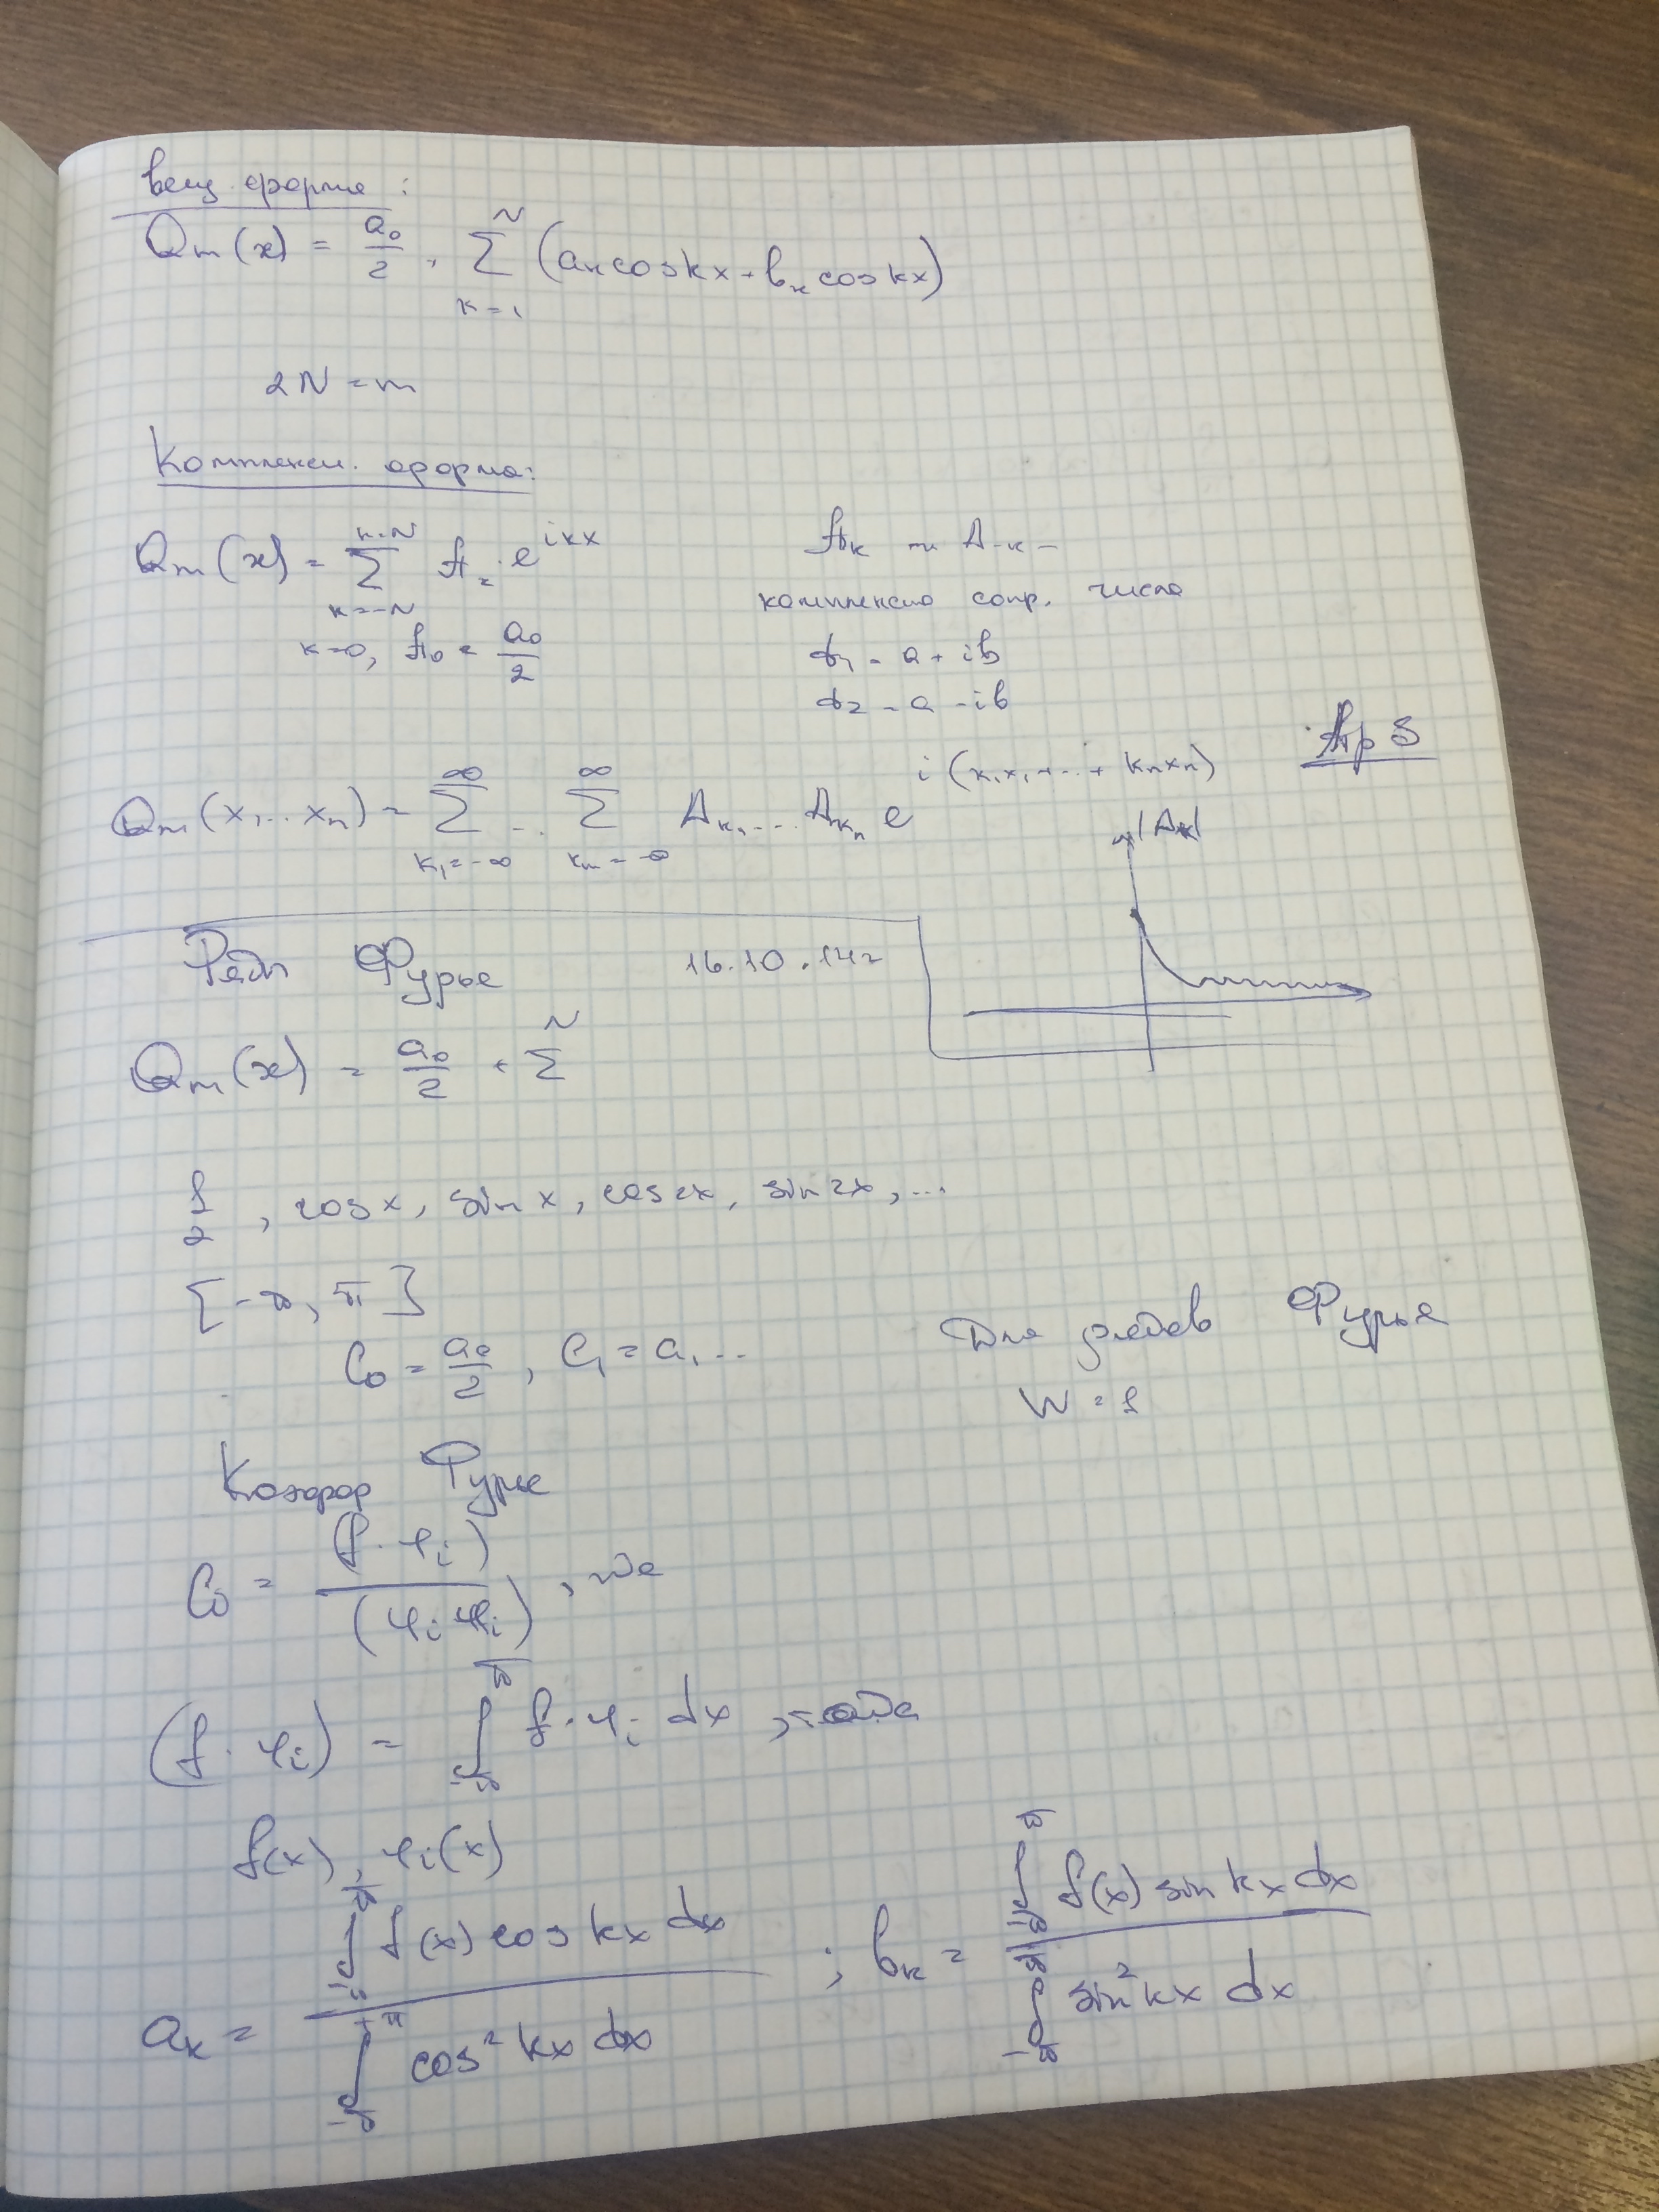 Вещ. форма:
Qm(x) = a₀/2 + Σ_{k=1}^{N} (aₖcoskx + bₖcoskx)
2N = m
Комплексн. форма:
Qm(x) = Σ_{k=-N}^{k=N} A e^{ikx}
k=0, A₀ = a₀/2
Aₖ и A₋ₖ –
комплексно сопр. числа
= a + ib
= a - ib
Qm(x₁...xₙ) = Σ_{k₁=-∞}^{∞} ... Σ_{kₙ=-∞}^{∞} A_{k₁}...A_{kₙ} e^{i(k₁x₁+...+kₙxₙ)}
|Aₖ|
Ряды Фурье 16.10.14г
Qm(x) = a₀/2 + Σ^{N}
1/2, cosx, sinx, cos2x, sin2x, ...
[-π, π]
C₀ = a₀/2, C₁ = a₁...
Для рядов Фурье
W = 1
Коэфф Фурье
C₀ = (f·φᵢ)/(φᵢφᵢ), где
(f·φᵢ) = ∫_{-π}^{π} f·φᵢ dx,
f(x), φᵢ(x)
aₖ = ∫_{-π}^{π} f(x) cos kx dx / ∫_{-π}^{π} cos² kx dx ; bₖ = ∫_{-π}^{π} f(x) sin kx dx / ∫_{-π}^{π} sin² kx dx